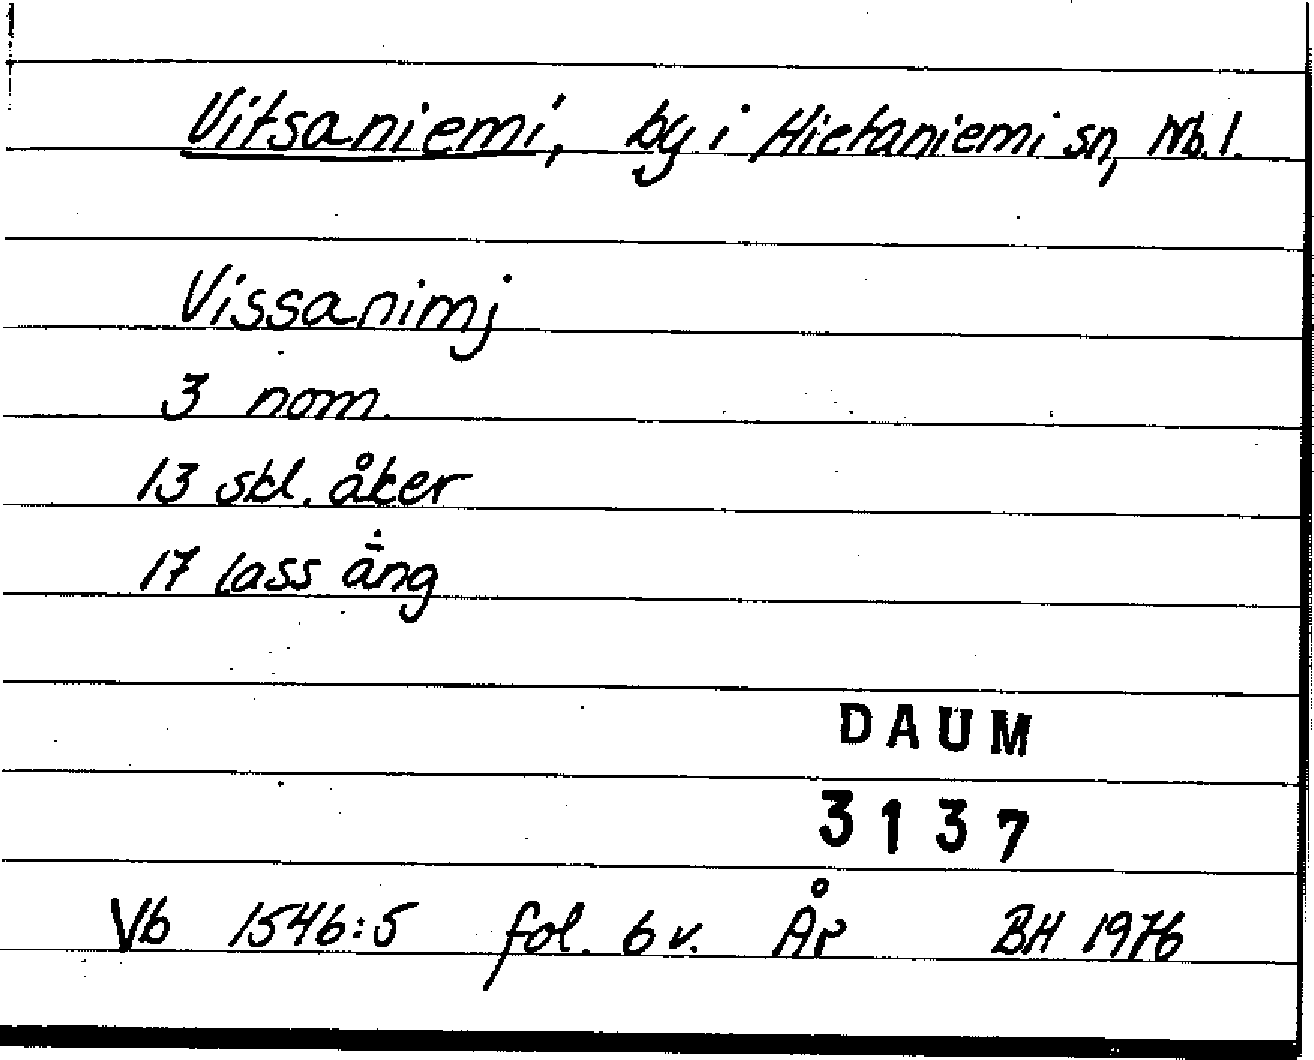 Vitsaniemi, by i Hietaniemi sn, Nb. l.
Vissanimj
3 nom.
13 skl. åker
17 lass äng
DAUM
3137
Vb 1546:5 fol. 6 v. År BH 1976